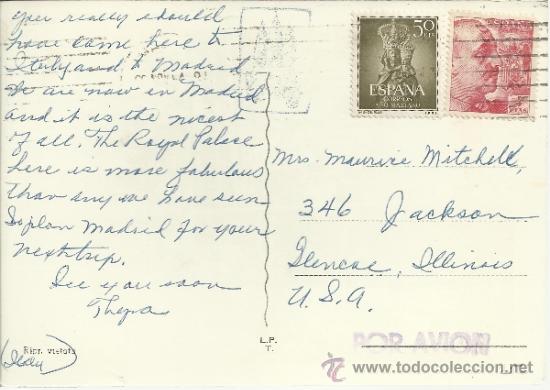 you really should
have come here to
Italy and to Madrid
We are now in Madrid
and it is the nicest
of all. The Royal Palace
here is more fabulous
than any we have seen
So plan Madrid for your
next trip.
See you soon
(Jean)
Mrs. Maurice Mitchell,
346 Jackson
Glencoe, Illinois
U.S.A.
50
ESPAÑA
CORREOS
AÑO MARIANO
L.P.
T.
POR AVION
www.todocoleccion.net